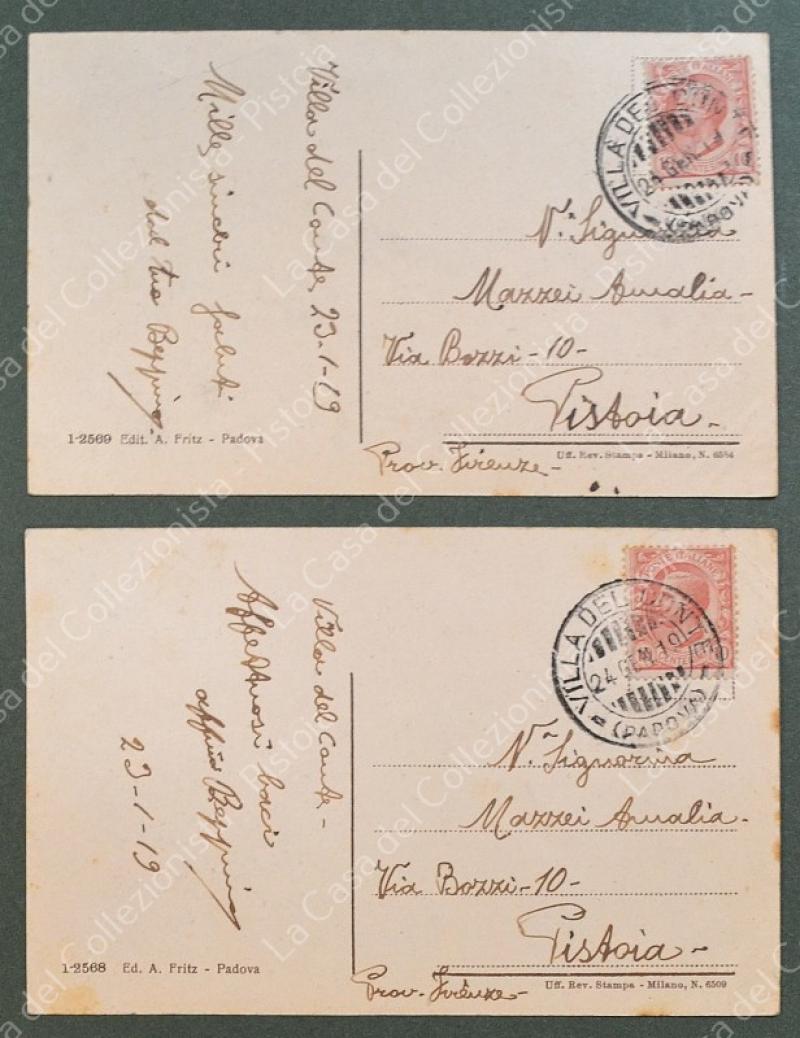 Villa del Conte 23-1-19
Mille sinceri saluti
dal tuo Beppino
VILLA DEL CONTE
(PADOVA)
POSTE ITALIANE
N. Signorina
Mazzei Amalia -
Via Bozzi - 10 -
Pistoia -
Prov. Firenze -
1-2569 Edit. A. Fritz - Padova
Uff. Rev. Stampa - Milano, N. 6584
Villa del Conte -
Affettuosi baci
Beppino
23-1-19
VILLA DEL CONTE
24 GEN 19
(PADOVA)
POSTE ITALIANE
N. Signorina
Mazzei Amalia -
Via Bozzi - 10 -
Pistoia -
Prov. Firenze -
1-2568 Ed. A. Fritz - Padova
Uff. Rev. Stampa - Milano, N. 6509
La Casa del Collezionista - Pistoia